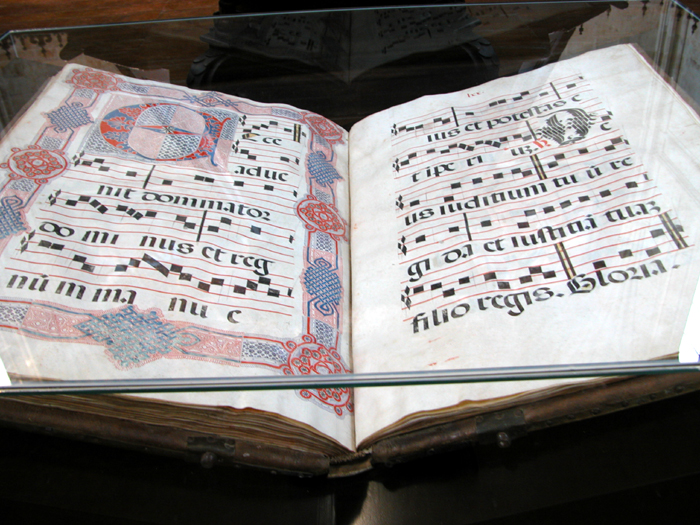 Ecce
aduc
nit dominator
do mi nus et reg
nū m ma nu e
ius et potestas e
t ipe ri
us iuditium tu ū re
gi da et iustitiā tuā
filio regis. Gloria.